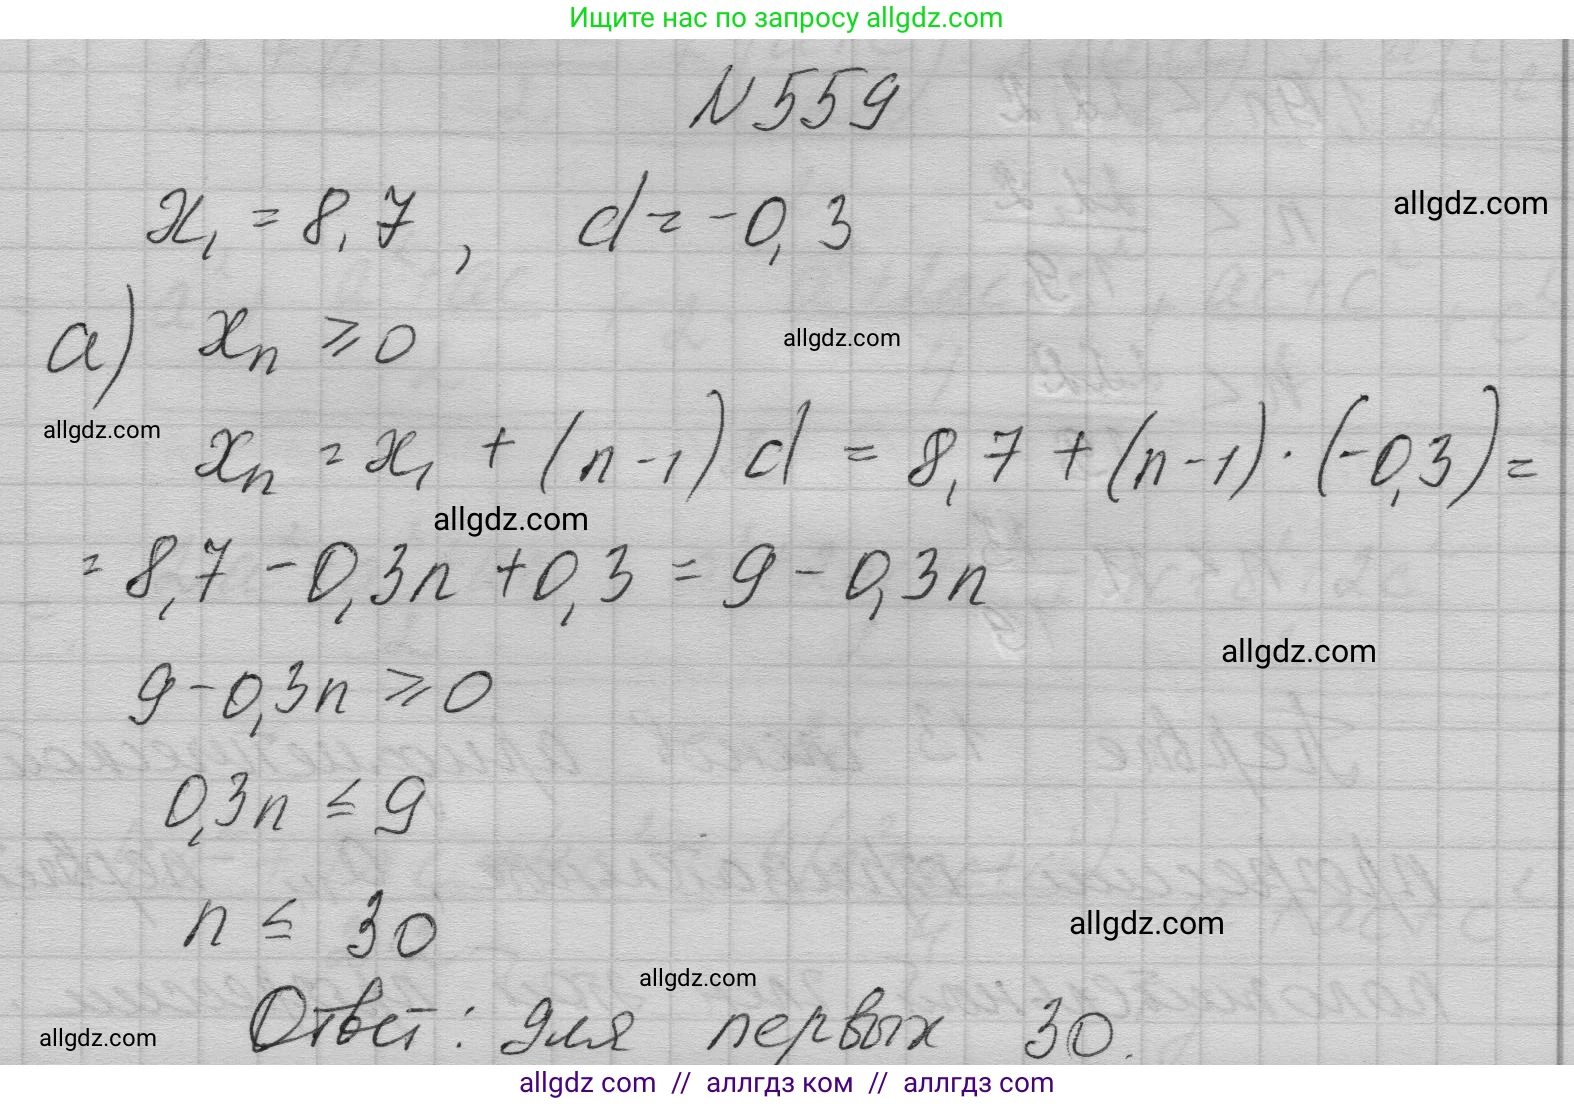 Ищите нас по запросу allgdz.com
N 559
x₁ = 8,7 , d = -0,3
allgdz.com
а) xₙ ⩾ 0
allgdz.com
allgdz.com
xₙ = x₁ + (n - 1) d = 8,7 + (n - 1) · (-0,3) =
allgdz.com
= 8,7 - 0,3n + 0,3 = 9 - 0,3n
allgdz.com
9 - 0,3n ⩾ 0
0,3n ≤ 9
n ≤ 30
allgdz.com
allgdz.com
Ответ: для первых 30.
allgdz.com
allgdz com // аллгдз ком // аллгдз com